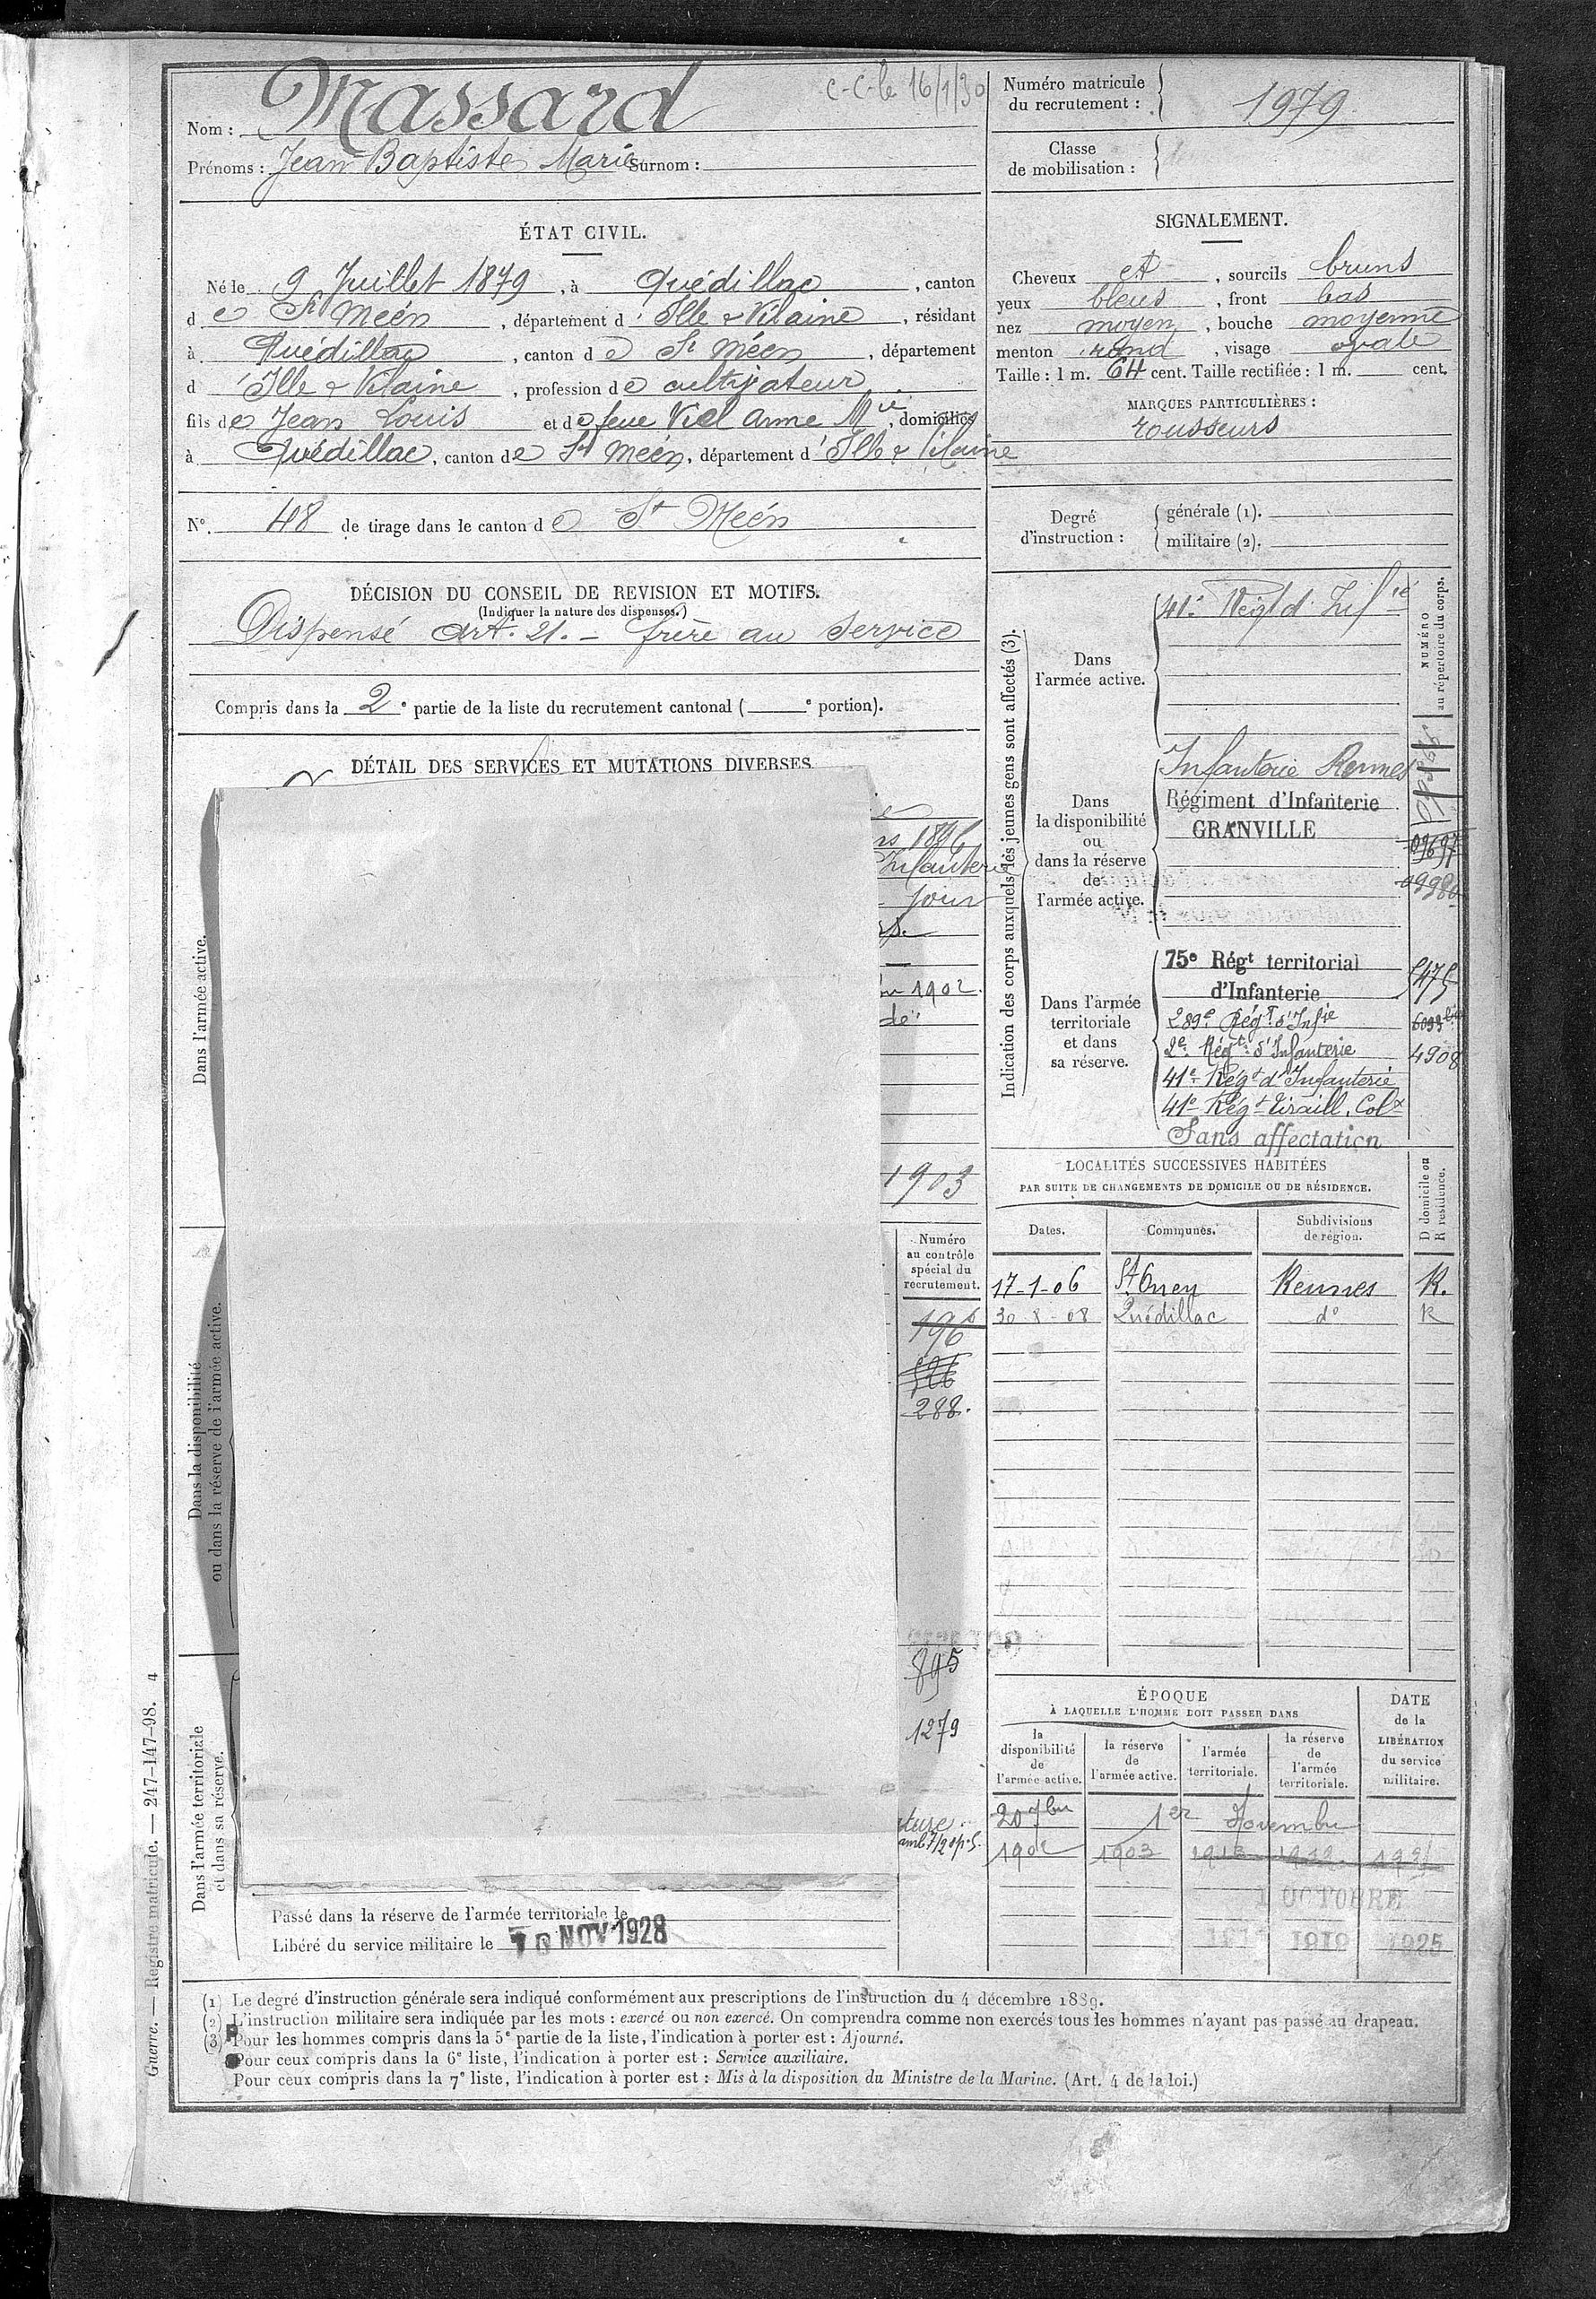 Massard
c-c-le 16/1/30
Nom :
Prénoms : Jean-Baptiste Marie Surnom :
Numéro matricule
du recrutement :
1979
Classe
de mobilisation :
ÉTAT CIVIL.
Né le 9 Juillet 1879, à Quédillac, canton
de St Méen, département d'Ille & Vilaine, résidant
à Quédillac, canton de St Méen, département
d'Ille & Vilaine, profession de cultivateur
fils de Jean Louis et de feue Viel Anne Mie, domiciliés
à Quédillac, canton de St Méen, département d'Ille & Vilaine
N° 48 de tirage dans le canton de St Méen
DÉCISION DU CONSEIL DE REVISION ET MOTIFS.
(Indiquer la nature des dispenses.)
Dispensé Art. 21. - frère au service
Compris dans la 2e partie de la liste du recrutement cantonal ( e portion).
DÉTAIL DES SERVICES ET MUTATIONS DIVERSES
Infanterie
jour
1902.
dé
1903
Dans l'armée active.
Dans la disponibilité
ou dans la réserve de l'armée active.
Dans l'armée territoriale
et dans sa réserve.
Numéro
au contrôle
spécial du
recrutement.
196
526
288.
895
1279
Passé dans la réserve de l'armée territoriale le
Libéré du service militaire le 10 NOV 1928
SIGNALEMENT.
Cheveux et, sourcils bruns
yeux bleus, front bas
nez moyen, bouche moyenne
menton rond, visage ovale
Taille : 1 m. 64 cent. Taille rectifiée : 1 m. cent.
MARQUES PARTICULIÈRES :
rousseurs
Degré
d'instruction :
générale (1).
militaire (2).
Indication des corps auxquels les jeunes gens sont affectés (3).
NUMÉRO
au répertoire du corps.
Dans
l'armée active.
41e Régt d'Infie
Dans
la disponibilité
ou
dans la réserve
de
l'armée active.
Infanterie Rennes
Régiment d'Infanterie
GRANVILLE
09697
09980
Dans l'armée
territoriale
et dans
sa réserve.
75e Régt territorial
d'Infanterie
5475
289e Régt d'Infie
2e Régt d'Infanterie
4908
41e Régt d'Infanterie
41e Régt Tiraill. Colx
Sans affectation
LOCALITÉS SUCCESSIVES HABITÉES
PAR SUITE DE CHANGEMENTS DE DOMICILE OU DE RÉSIDENCE.
D domicile ou
R résidence.
Dates. Communes. Subdivisions
de région.
17-1-06 St Onen Rennes R.
30-8-08 Quédillac do R
ÉPOQUE
À LAQUELLE L'HOMME DOIT PASSER DANS
la
disponibilité
de
l'armée active.
la réserve
de
l'armée active.
l'armée
territoriale.
la réserve
de
l'armée
territoriale.
DATE
de la
LIBÉRATION
du service
militaire.
20 7bre 1er Novembre
1902 1903 1913 1919
1 OCTOBRE
1919 1925
(1) Le degré d'instruction générale sera indiqué conformément aux prescriptions de l'instruction du 4 décembre 1889.
(2) L'instruction militaire sera indiquée par les mots : exercé ou non exercé. On comprendra comme non exercés tous les hommes n'ayant pas passé au drapeau.
(3) Pour les hommes compris dans la 5e partie de la liste, l'indication à porter est : Ajourné.
Pour ceux compris dans la 6e liste, l'indication à porter est : Service auxiliaire.
Pour ceux compris dans la 7e liste, l'indication à porter est : Mis à la disposition du Ministre de la Marine. (Art. 4 de la loi.)
Guerre. — Registre matricule. — 247-147-98. 4